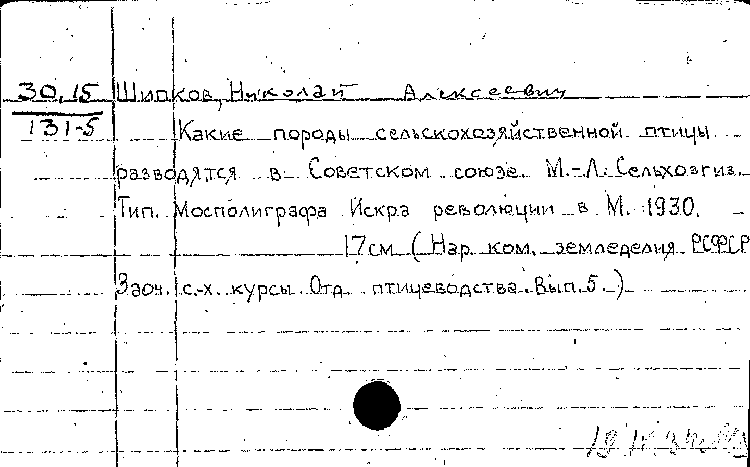 30.15 Шипков, Николай Алексеевич
131-5 Какие породы сельскохозяйственной птицы
разводятся в Советском союзе. М.-Л. Сельхозгиз.
Тип. Мосполиграфа Искра революции в М. 1930.
17см (Нар. ком. земледелия РСФСР
Заоч. с-х. курсы. Отд. птицеводства. Вып. 5.)